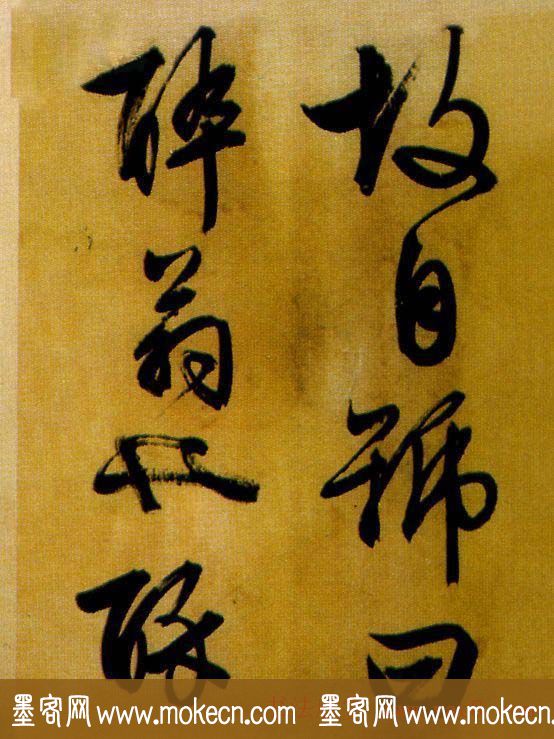 故自號曰
醉翁也醉
墨客网 www.mokecn.com 墨客网 www.mokecn.com